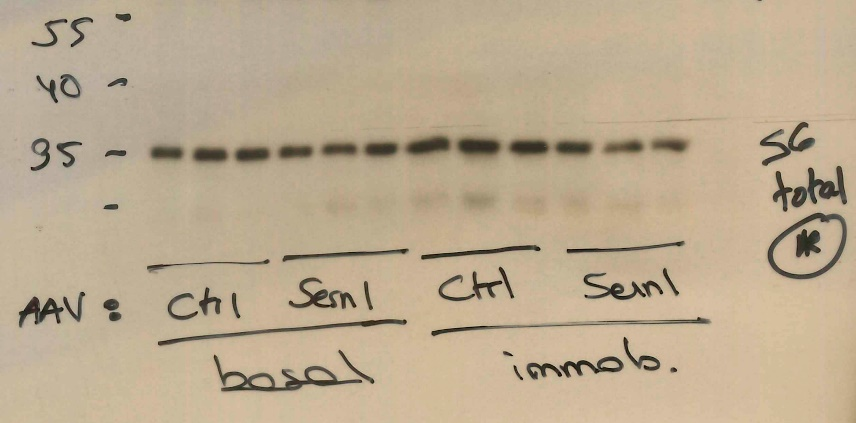 55 -
40 -
35 - S6
- total
AAV : Ctrl Sesn1 Ctrl Sesn1
basal immob.